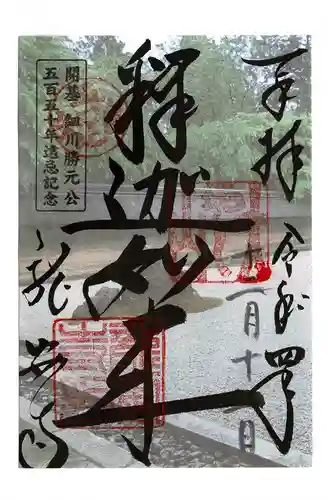 奉拝
令和四年
十一月十一日
釋迦如来
開基 細川勝元公
五百五十年遠忌記念
龍安寺